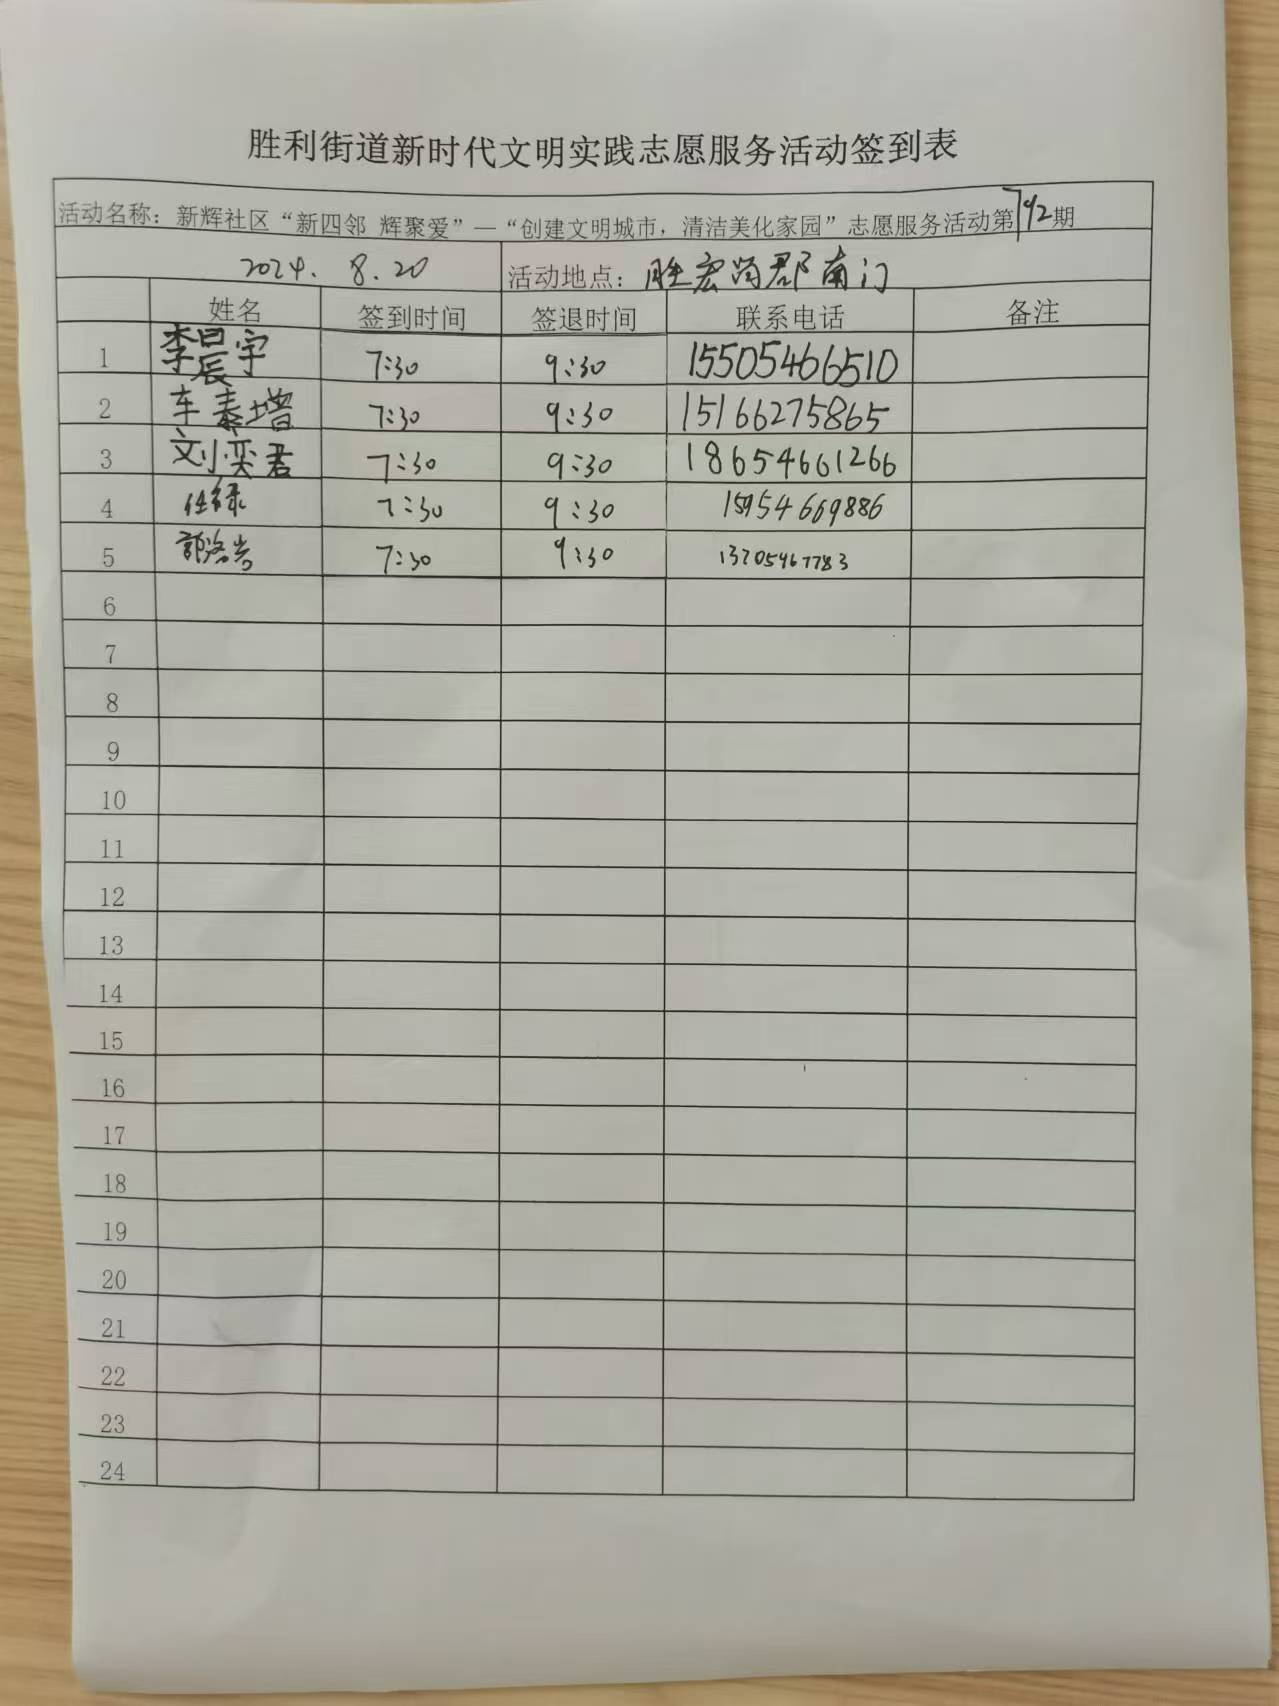 胜利街道新时代文明实践志愿服务活动签到表
活动名称：新辉社区“新四邻 辉聚爱”—“创建文明城市，清洁美化家园”志愿服务活动第792期
2024.8.20 活动地点：胜宏景郡南门
姓名 签到时间 签退时间 联系电话 备注
1 李晨宇 7:30 9:30 15505466510
2 车泰增 7:30 9:30 15166275865
3 刘奕君 7:30 9:30 18654661266
4 任禄 7:30 9:30 15954669886
5 7:30 9:30 13705467783
6
7
8
9
10
11
12
13
14
15
16
17
18
19
20
21
22
23
24